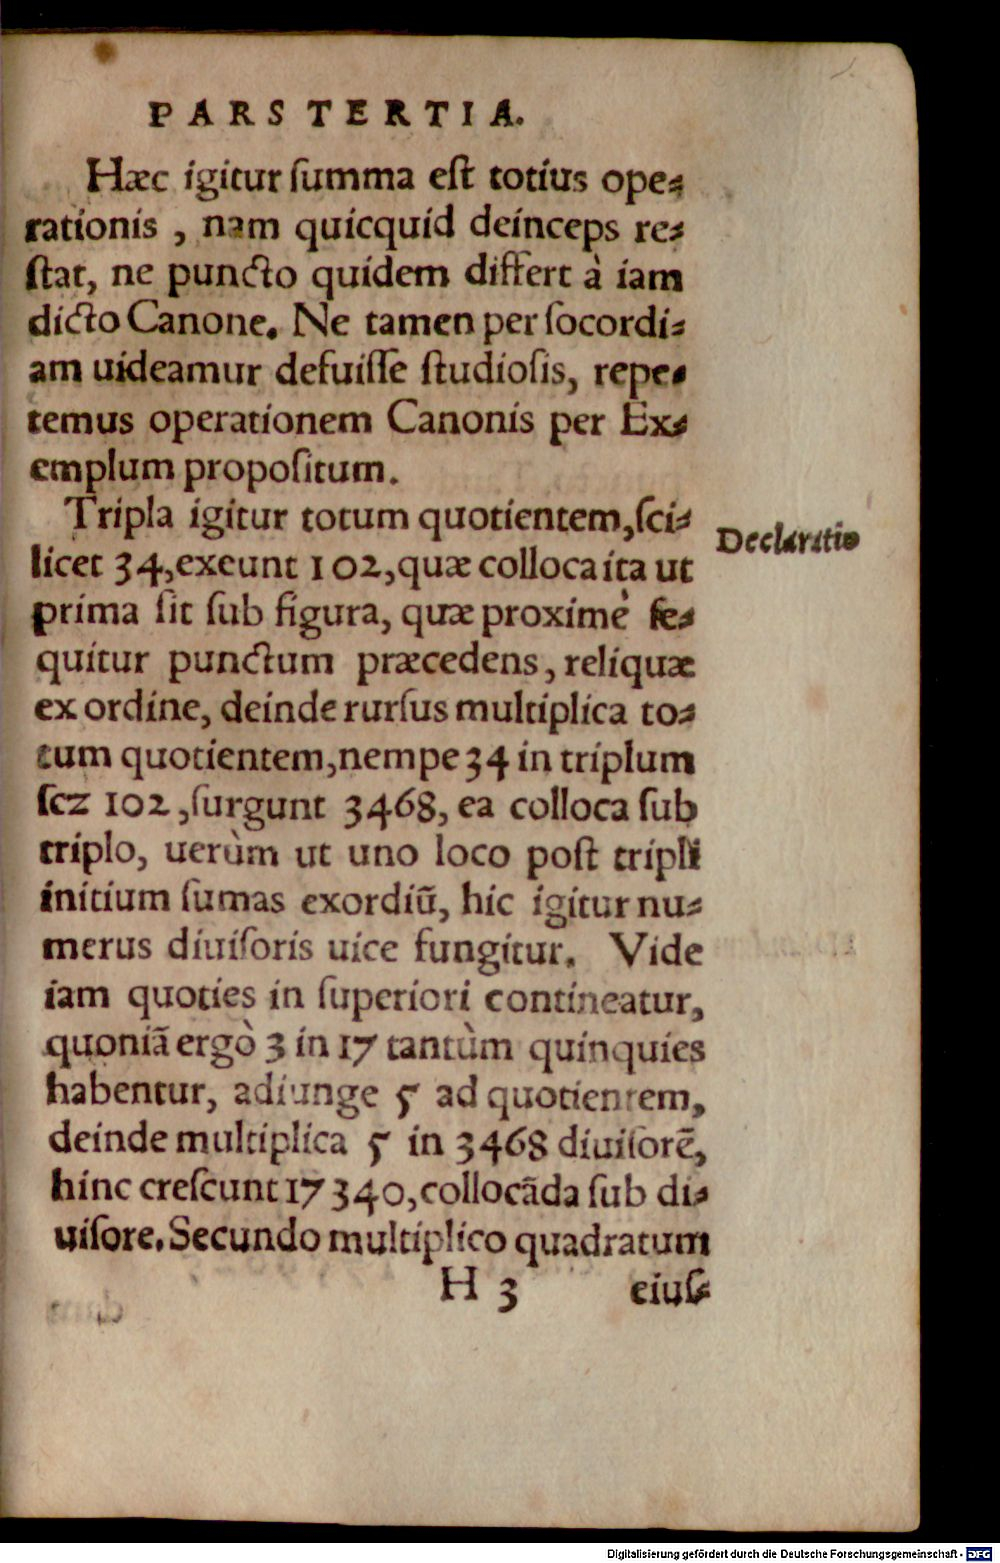 PARS TERTIA.
Hæc igitur ſumma eſt totius ope⸗
rationis , nam quicquid deinceps re⸗
ſtat, ne puncto quidem differt à iam
dicto Canone. Ne tamen per ſocordi⸗
am uideamur defuiſſe ſtudioſis, repe⸗
temus operationem Canonis per Ex⸗
emplum propoſitum.
Tripla igitur totum quotientem,ſci⸗
licet 34,exeunt 102,quæ colloca ita ut
prima ſit ſub figura, quæ proximè ſe⸗
quitur punctum præcedens, reliquæ
ex ordine, deinde rurſus multiplica to⸗
tum quotientem,nempe 34 in triplum
ſcz 102 ,ſurgunt 3468, ea colloca ſub
triplo, uerùm ut uno loco poſt tripli
initium ſumas exordiũ, hic igitur nu⸗
merus diuiſoris uice fungitur. Vide
iam quoties in ſuperiori contineatur,
quoniã ergò 3 in 17 tantùm quinquies
habentur, adiunge 5 ad quotientem,
deinde multiplica 5 in 3468 diuiſorẽ,
hinc creſcunt 17340,collocãda ſub di⸗
uiſore. Secundo multiplico quadratum
H 3 eiuſ⸗
Declaratio
Digitalisierung gefördert durch die Deutsche Forschungsgemeinschaft - DFG